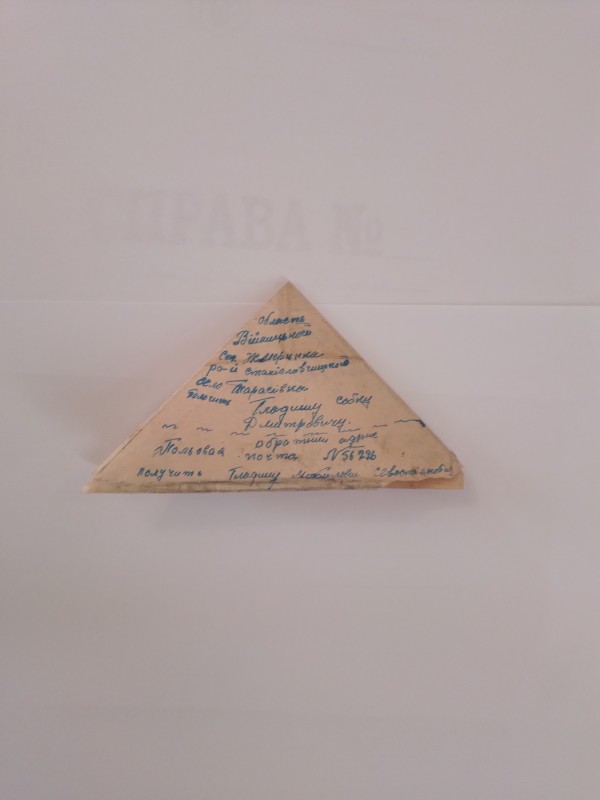 СПРАВА №
область
Війницького
ст. Жмеринка
ра-й станіславчицкого
село Тарасівка
Получить
Гладишу
Дмитровичу.
обратний адрис
Польовая почта N 56226
получить Гладишу